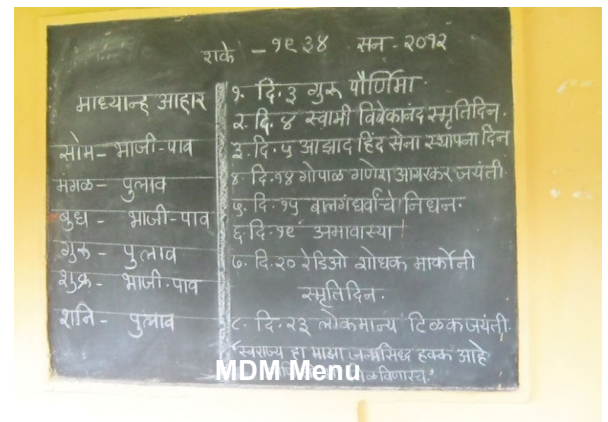 शके - १९३४ सन - २०१२
माध्यान्ह आहार
सोम - भाजी-पाव
मंगळ - पुलाव
बुध - भाजी-पाव
गुरु - पुलाव
शुक्र - भाजी-पाव
शनि - पुलाव
१. दि. ३ गुरु पौर्णिमा.
२. दि. ४ स्वामी विवेकानंद स्मृतिदिन.
३. दि. ५ आझाद हिंद सेना स्थापना दिन
४. दि. १४ गोपाळ गणेश आगरकर जयंती.
५. दि. १५ बालगंधर्वांचे निधन.
६. दि. १९ अमावास्या
७. दि. २० रेडिओ शोधक मार्कोनी
स्मृतिदिन.
८. दि. २३ लोकमान्य टिळक जयंती.
"स्वराज्य हा माझा जन्मसिद्ध हक्क आहे
MDM Menu